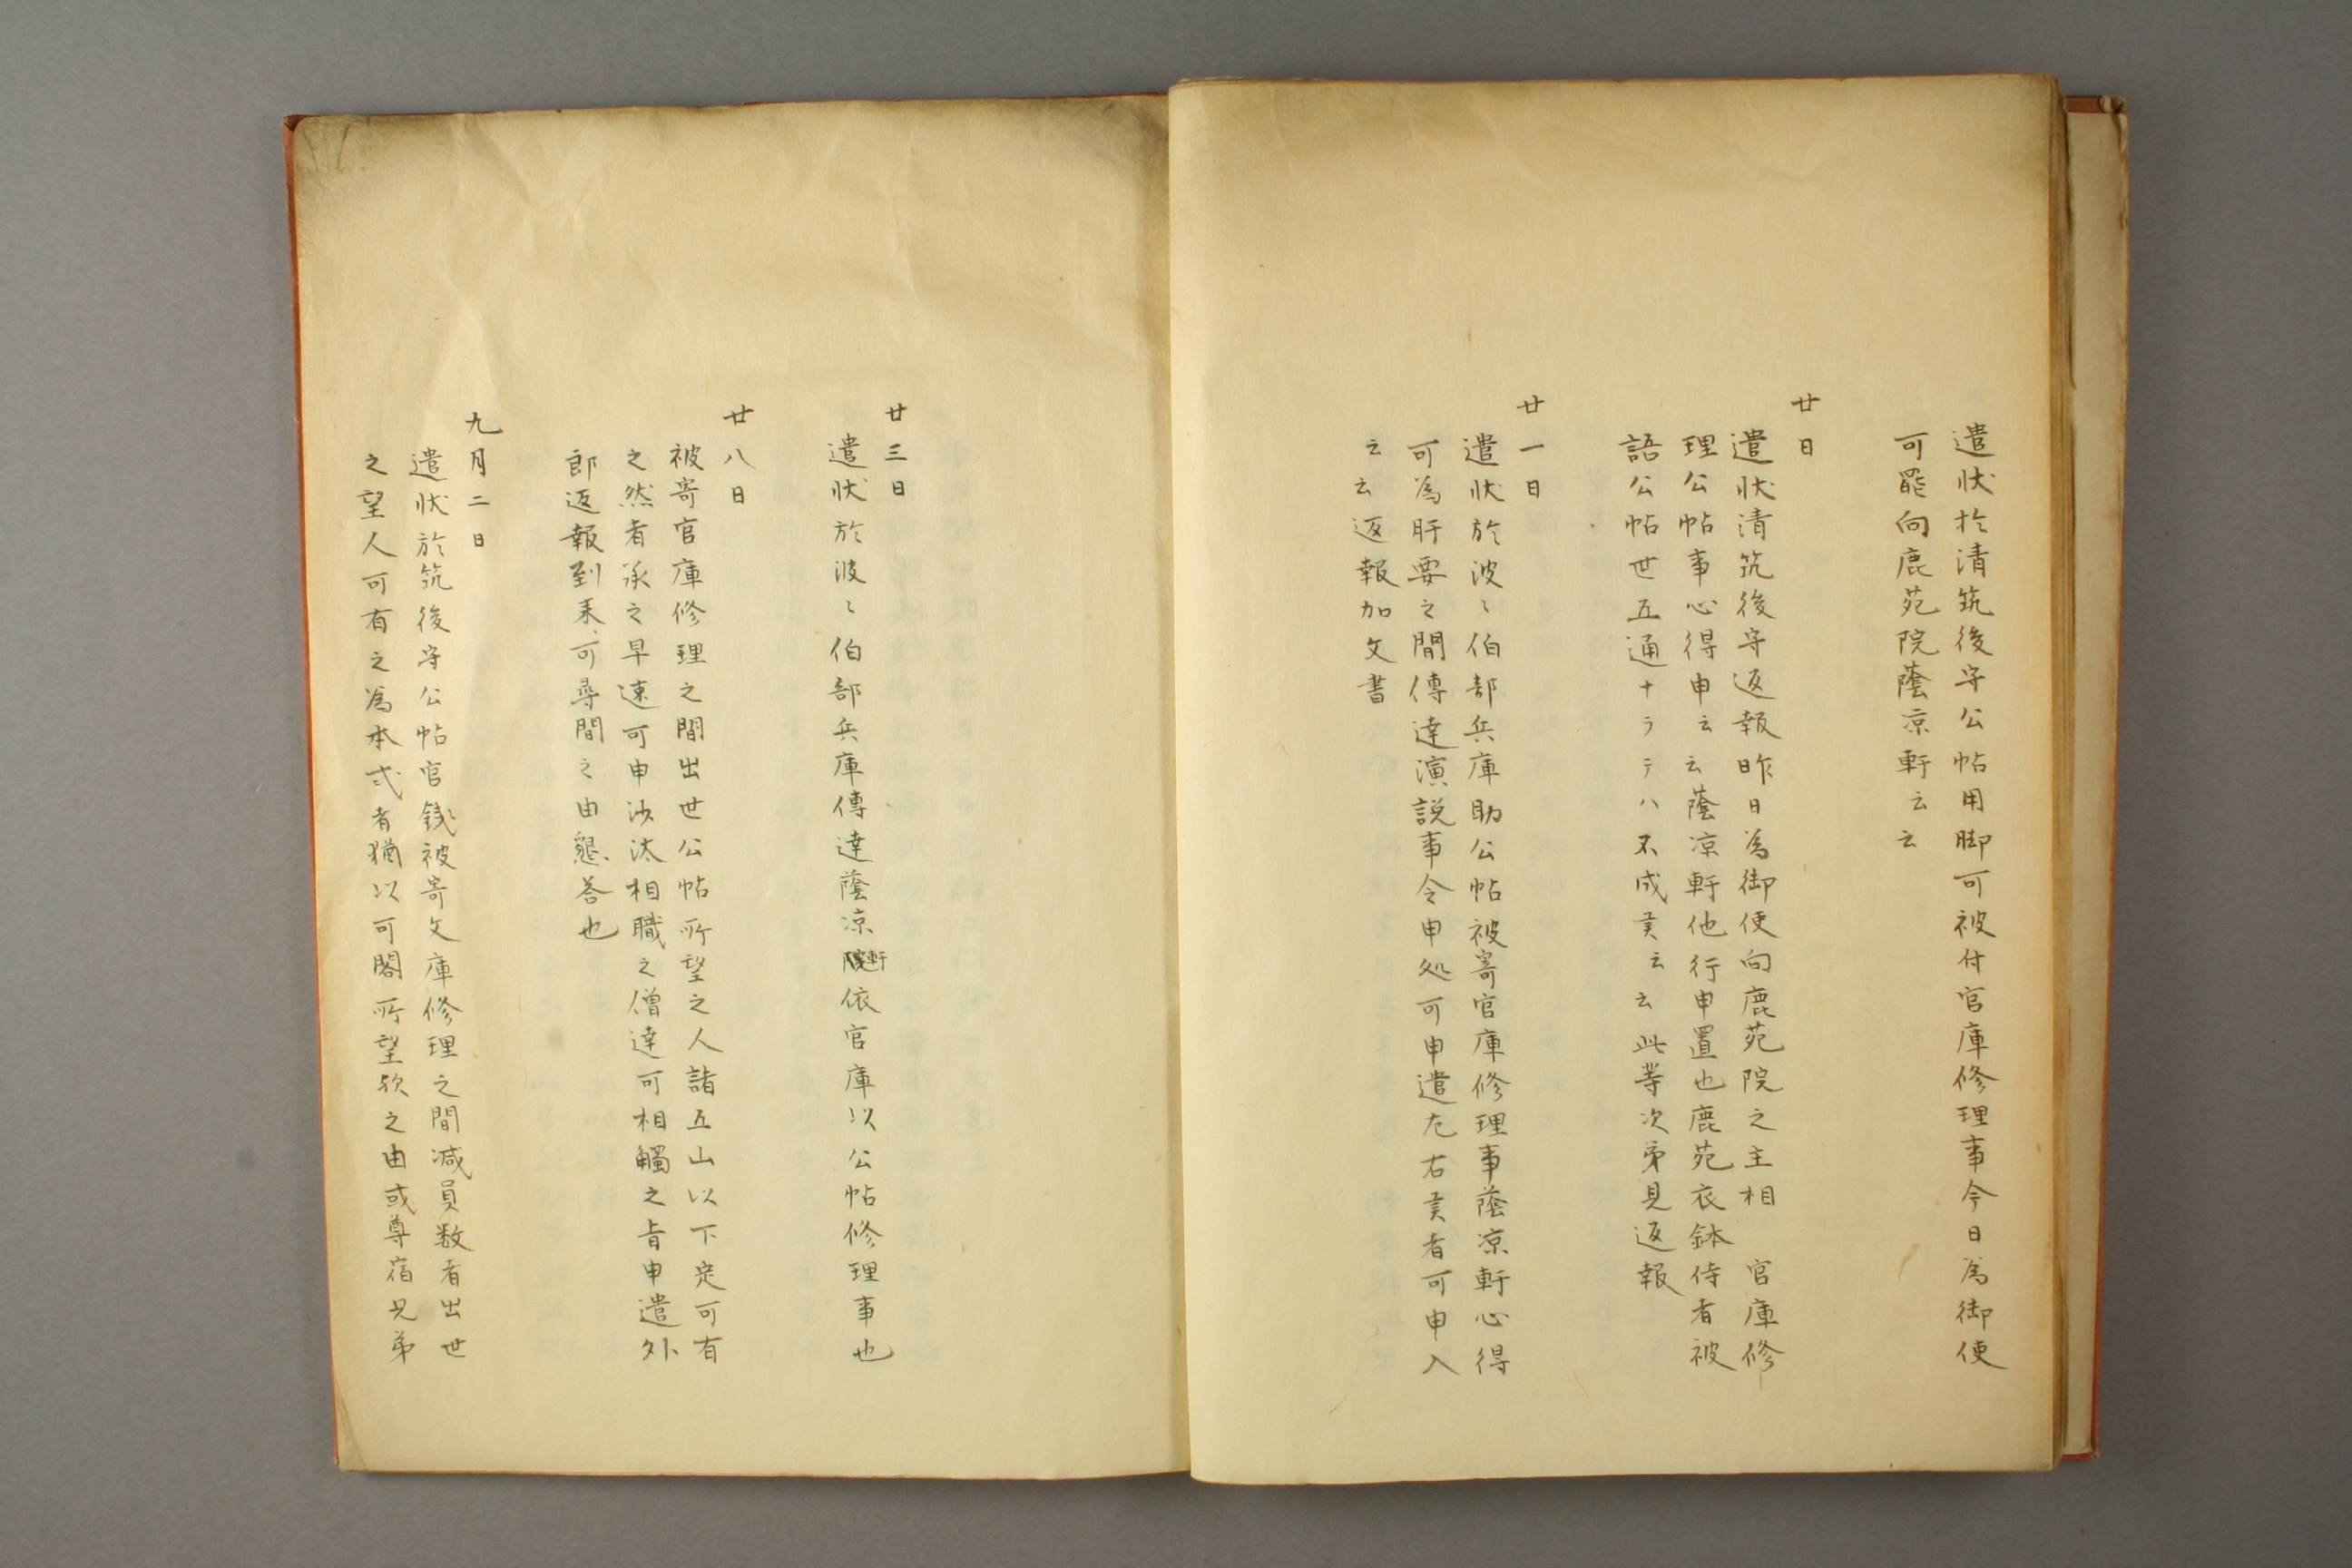 遣状於清筑後守公帖用脚可被付官庫修理事今日為御使
可罷向鹿苑院蔭凉軒云云
廿日
遣状清筑後守返報昨日為御使向鹿苑院之主相　官庫修
理公帖事心得申云云蔭凉軒他行申置也鹿苑衣鉢侍者被
語公帖廿五通ナラテハ不成実云云此等次第見返報
廿一日
遣状於波々伯部兵庫助公帖被寄官庫修理事蔭凉軒心得
可為肝要之間傳達演説事令申処可申遣左右実者可申入
云云返報加文書
廿三日
遣状於波々伯部兵庫傳達蔭凉軒依官庫以公帖修理事也
廿八日
被寄官庫修理之間出世公帖所望之人諸五山以下定可有
之然者承之早速可申沙汰相職之僧達可相觸之旨申遣外
郎返報到来可尋間之由懇答也
九月二日
遣状於筑後守公帖官銭被寄文庫修理之間減員数者出世
之望人可有之為本式者猶以可閣所望欤之由或尊宿兄弟